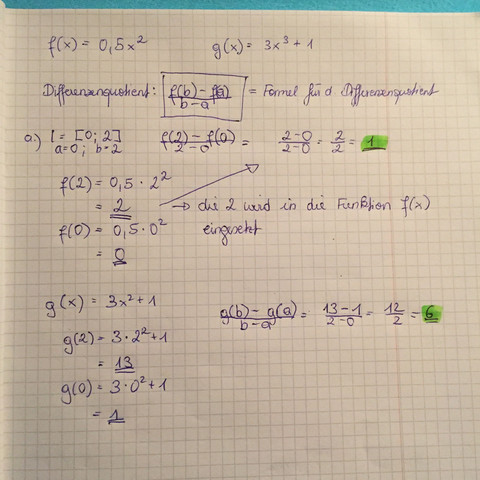 f(x) = 0,5x² g(x) = 3x³ + 1
Differenzenquotient: f(b) - f(a) / b - a = Formel für d. Differenzenquotient
a.) I = [0; 2] f(2) - f(0) / 2 - 0 = 2 - 0 / 2 - 0 = 2 / 2 = 1
a = 0; b = 2
f(2) = 0,5 · 2²
= 2 → die 2 wird in die Funktion f(x)
f(0) = 0,5 · 0² eingesetzt
= 0
g(x) = 3x² + 1 g(b) - g(a) / b - a = 13 - 1 / 2 - 0 = 12 / 2 = 6
g(2) = 3 · 2² + 1
= 13
g(0) = 3 · 0² + 1
= 1